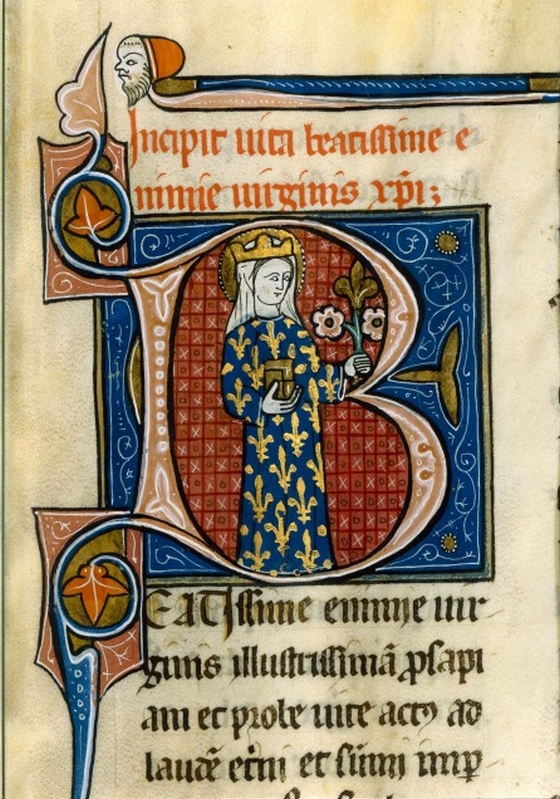 Incipit uita beatissime e
nimie uirginis xp̄i;
BEATissime enimie uir
ginis illustrissimā ꝓsapi
am et prole uite actꝯ ad
laudē et̄ni et sūmi imꝑ